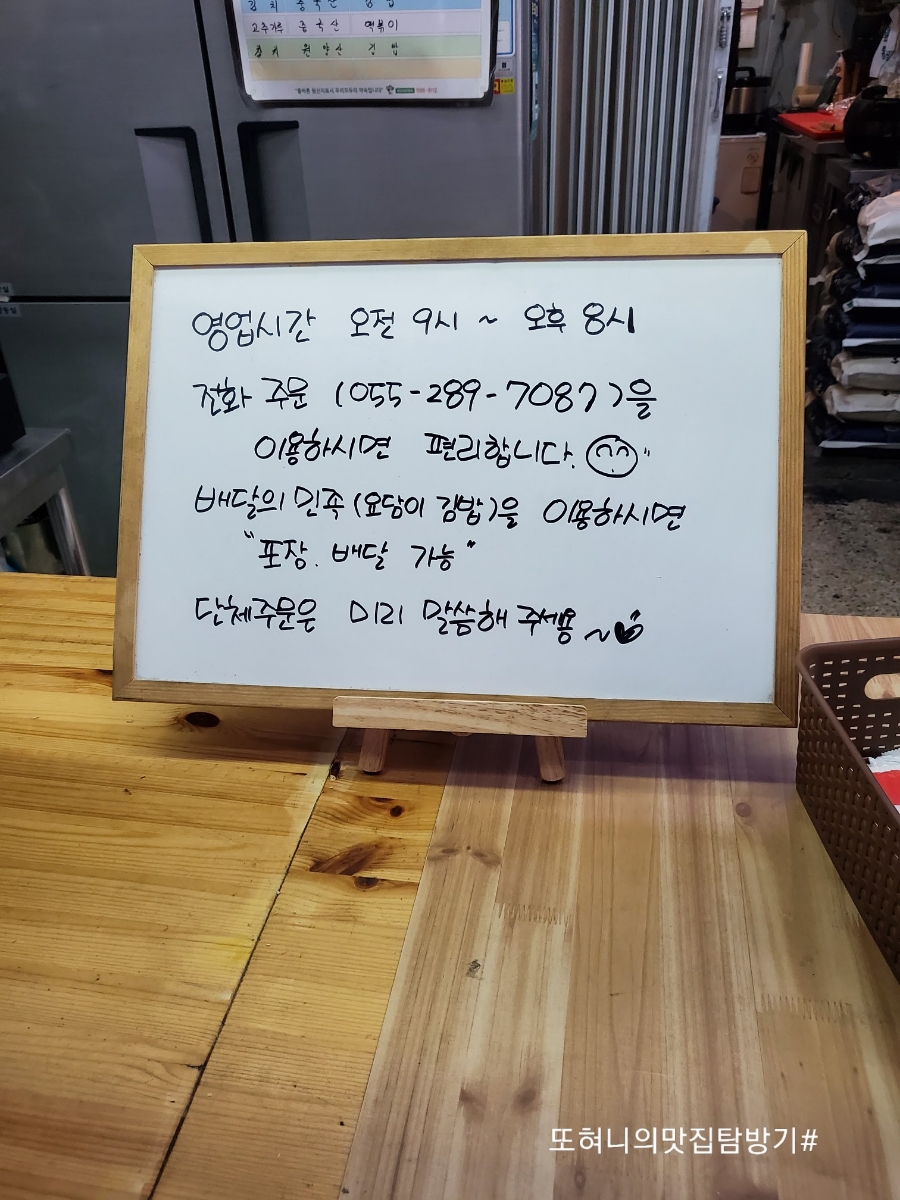 김치 중국산 김밥
고추가루 중국산 떡볶이
김치 원양산 김밥
"올바른 원산지표시 우리모두의 약속입니다"
영업시간 오전 9시 ~ 오후 8시
전화 주문 (055-289-7087)을
이용하시면 편리합니다.
배달의 민족 (요담이 김밥)을 이용하시면
"포장. 배달 가능"
단체주문은 미리 말씀해 주세용 ~
또혀니의맛집탐방기#